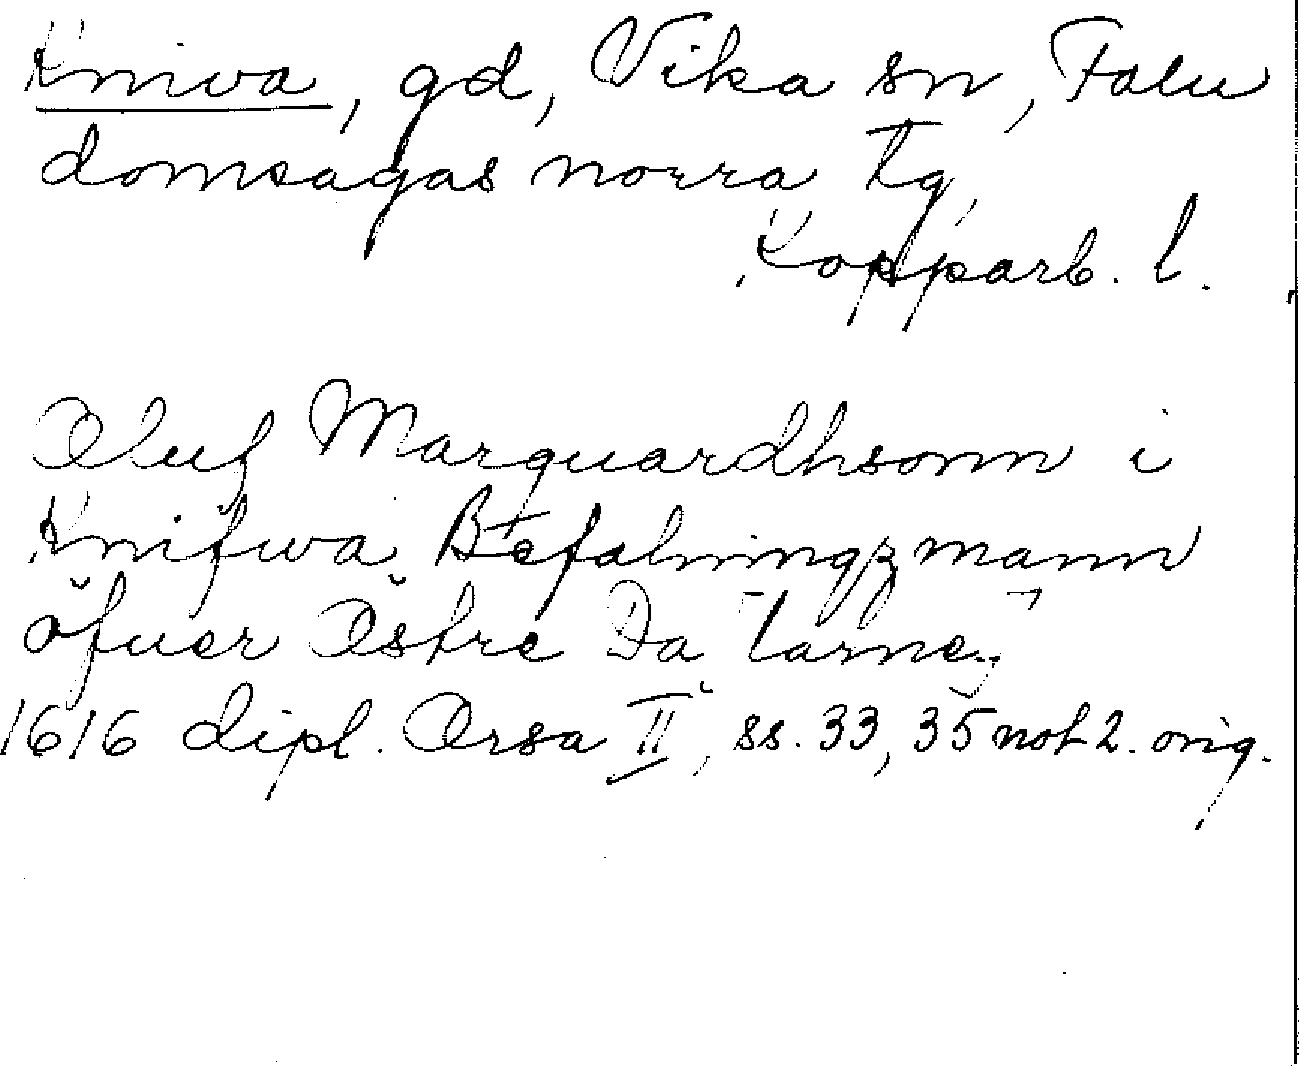 Kniva, gd, Vika sn, Falu
domsagas norra tg,
Kopparb. l.
Oluf Marquardhsonn i
Knifwa Befalningzmann
öfuer Østre Da[larne]
1616 dipl. Orsa II, ss. 33, 35 not 2. orig.